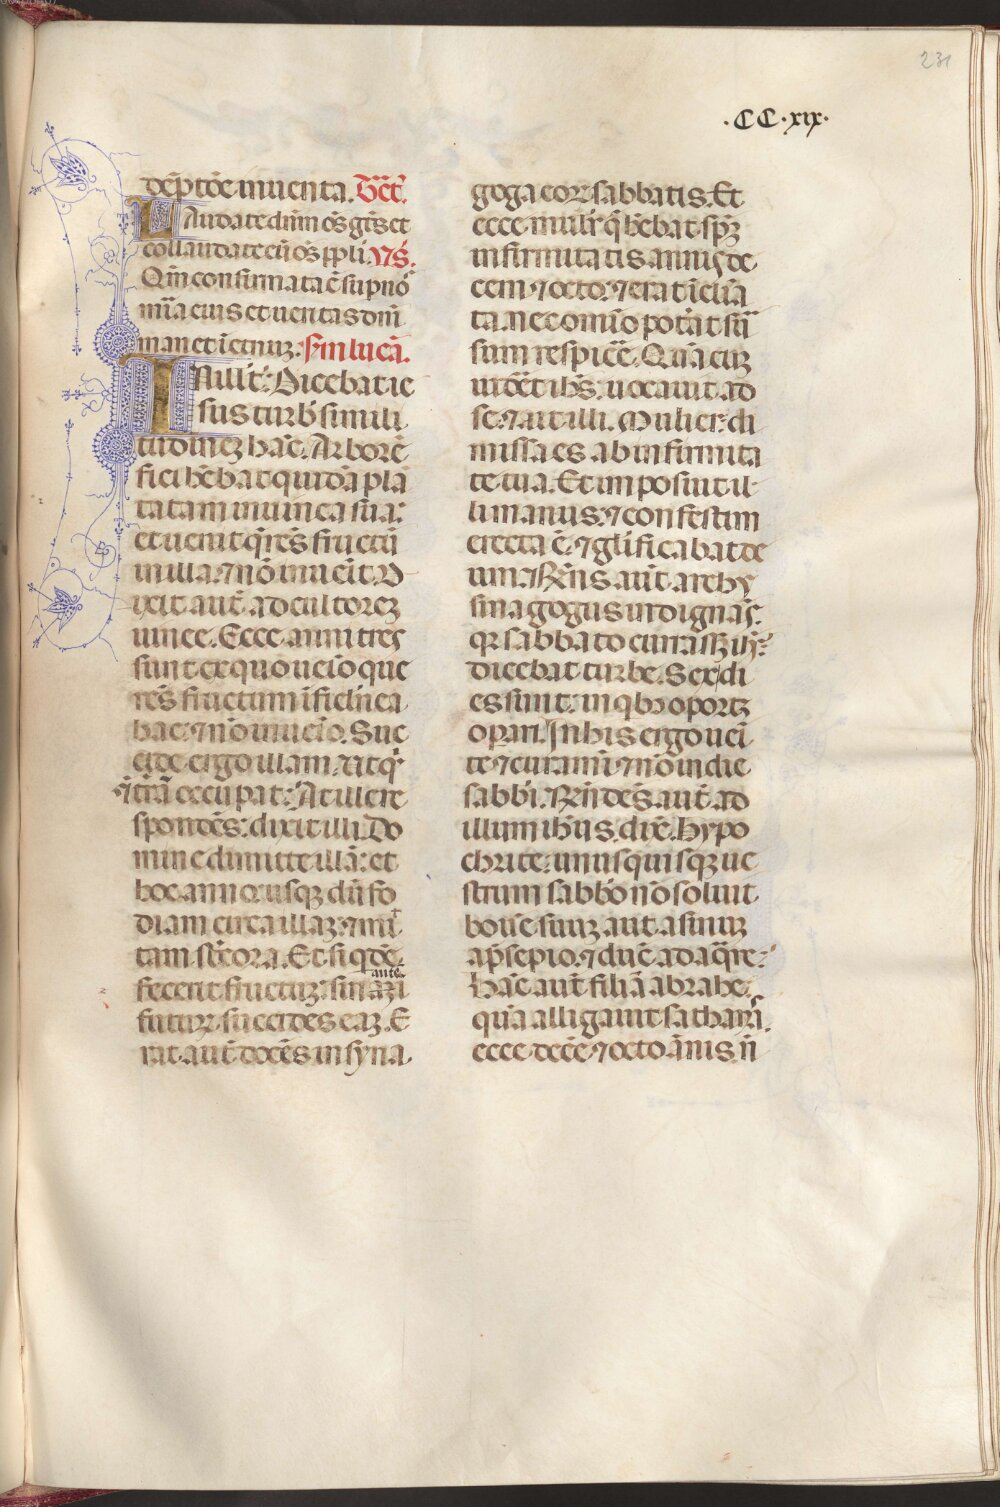 231
.CC.xix.
dēp̄tōe inventa. Tc̄t.
Laudate dn̄m oēs gētes et
collaudate eū oēs ppl̄i. Vs̄.
Qm̄ confirmata ē sup nō
mīa eius et ueritas dn̄i
manet ī et̄nuꝫ. S̄m lucā.
IN ill̄ t̄. Dicebat ie
sus turb̄ simili
tudineꝫ hāc. Arborē
fici hēbat quidā pla
tatam in uinea sua:
et uenit q̄rēs fructū
in illa: ⁊ nō inuēit. D
ixit aut̄ ad cultoreꝫ
uinee. Ecce anni tres
sunt ex quo uēio que
rēs fructum ī ficulnea
hac: ⁊ nō inuēio. Suc
cide ergo illam. ut q̄
ī tr̄ā occupat: At ille re
spondēs: dixit illi. Do
mine dimitte illā: et
hoc anno: usqꝫ dū fo
diam circa illaꝫ: ⁊ mit
tam st̄cora. Et si qdē
fecerit fructuꝫ: sin aūte
futur̄ succides eaꝫ. E
rat aut̄ docēs in syna
goga eorꝝ sabbatis. Et
ecce muli'r q̄ hēbat sp̄ꝫ
infirmitatis annis de
cem ⁊ octo: ⁊ erat īclīa
ta. nec omīo potāt sū
sum respicē̄. Quā cuꝫ
uidēt ih̄s: uocauit ad
se: ⁊ ait illi. Mulier: di
missa es ab infirmita
te tua. Et imposuit il
li manus: ⁊ confestim
erecta ē. ⁊ gl̄ificabat de
um. Rn̄s aūt archy
sinagogus indignās.
qꝛ sabbato curass; ih̄s:
dicebat turbe. Sex di
es sunt: in qbꝫ oportꝫ
opari. In his ergo ueī
te ⁊ curamī: ⁊ nō in die
sabb̄i. Rn̄dēs aūt ad
illum ih̄us. dix̄. Hypo
chrite: unusquisqꝫ ue
strum sabb̄o nō soluit
bouē suuꝫ aut asinuꝫ
a p̄sepio. ⁊ ducē ad aq̄re:
Hāc aut̄ filiā abrahe:
quā alligauit sathan̄.
ecce decē ⁊ octo ānis. n̄